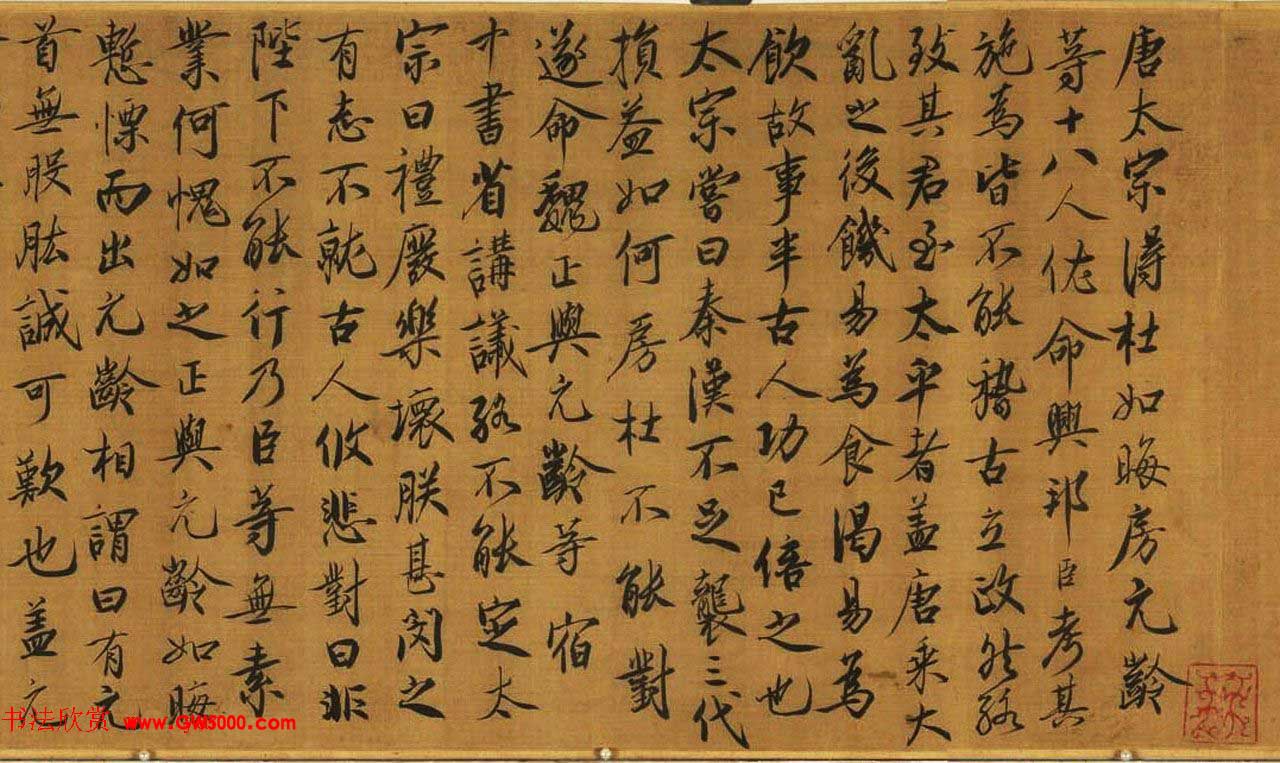 唐太宗得杜如晦房元齡
等十八人佐命興邦臣考其
施為皆不能稽古立政然終
致其君至太平者盖唐乘大
亂之後饑易為食渴易為
飲故事半古人功已倍之也
太宗嘗曰秦漢不足襲三代
損益如何房杜不能對
遂命魏正與元齡等宿
中書省講議終不能定太
宗曰禮廢樂壞朕甚閔之
有志不就古人攸悲對曰非
陛下不能行乃臣等無素
業何愧如之正與元齡如晦
慙慄而出元齡相謂曰有元
首無股肱誠可歎也盖元
书法欣赏 www.GW5000.com